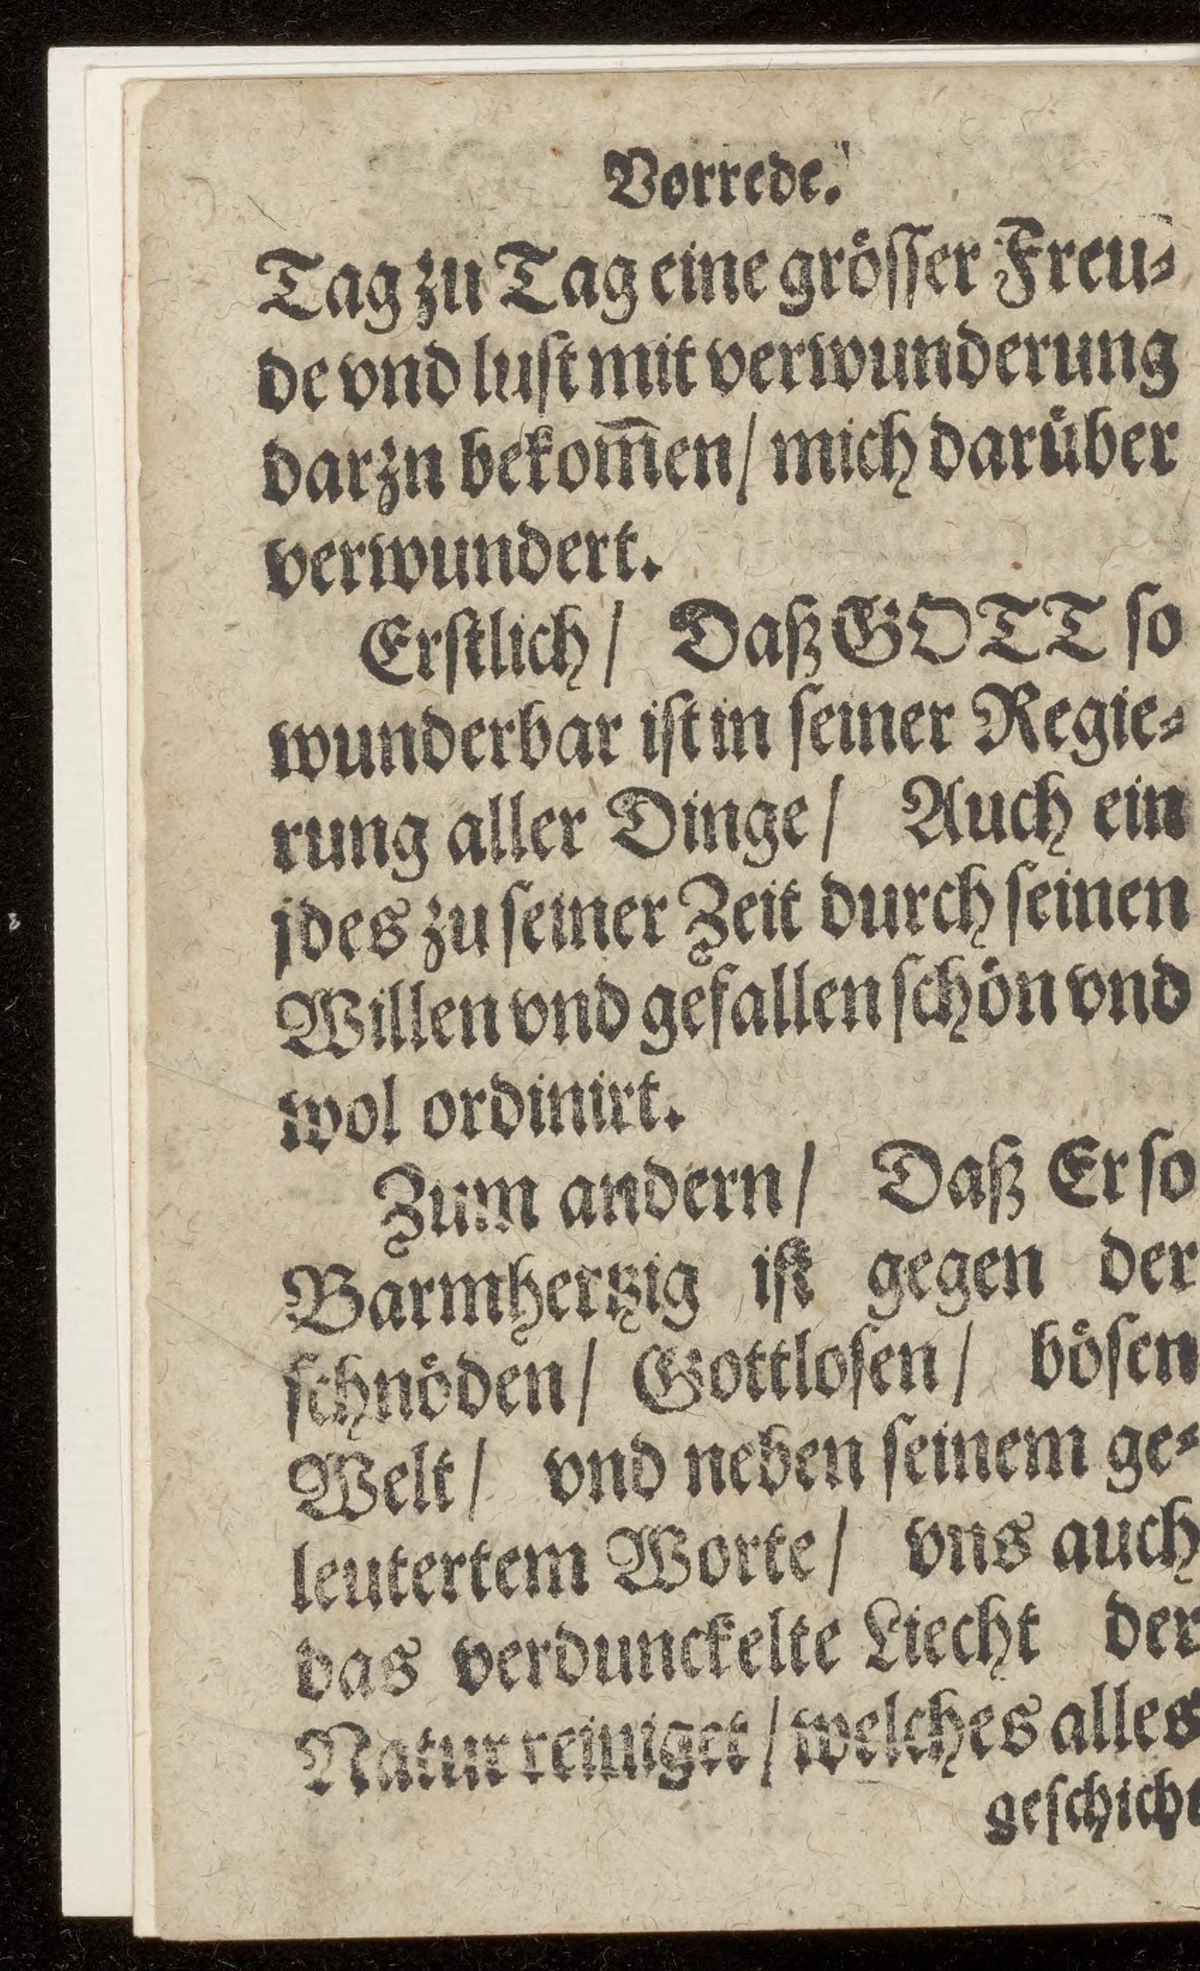 Vorrede.
Tag zu Tag eine gröſſer Freu⸗
de vnd luſt mit verwunderung
darzn bekom̃en/ mich daruͤber
verwundert.
Erſtlich/ Daß GOTT ſo
wunderbar iſt in ſeiner Regie⸗
rung aller Dinge/ Auch ein
jdes zu ſeiner Zeit durch ſeinen
Willen vnd gefallen ſchoͤn vnd
wol ordinirt.
Zum andern/ Daß Er ſo
Barmhertzig iſt gegen der
ſchnoͤden/ Gottloſen/ boͤſen
Welt/ vnd neben ſeinem ge⸗
leutertem Worte/ vns auch
das verdunckelte Liecht der
Natur reiniget/ welches alles
geſchicht